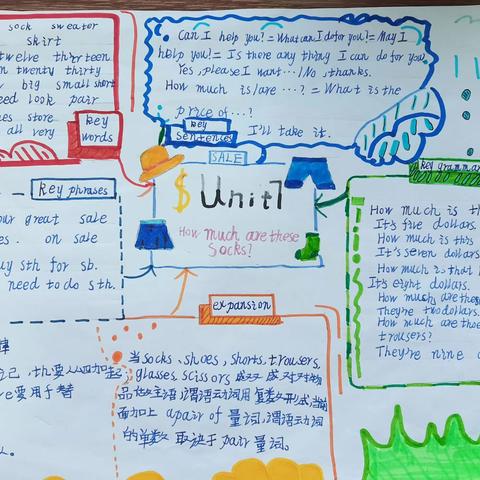 sock sweater
skirt
twelve thirteen
twenty thirty
big small short
need look pair
store
all very
key
words
Can I help you?=What can I do for you?=May I
help you?=Is there any thing I can do for you
Yes, please I want…/No, thanks.
How much is/are …?=What is the
price of…?
key
sentences
I'll take it.
SALE
$ Unit7
How much are these
Socks?
Key phrases
your great sale
on sale
buy sth for sb.
need to do sth.
key grammar
How much is th
It's five dollars.
How much is this
It's seven dollars
How much is that
It's eight dollars.
How much are these
They're two dollars.
How much are those
trousers?
They're nine
expansion
当socks、shoes, shorts, trousers,
glasses, scissors 成双成对对物
品做主语,谓语动词用复数形式,当前
面加上 a pair of 量词,谓语动词
的单数 取决于pair 量词。
要用于替